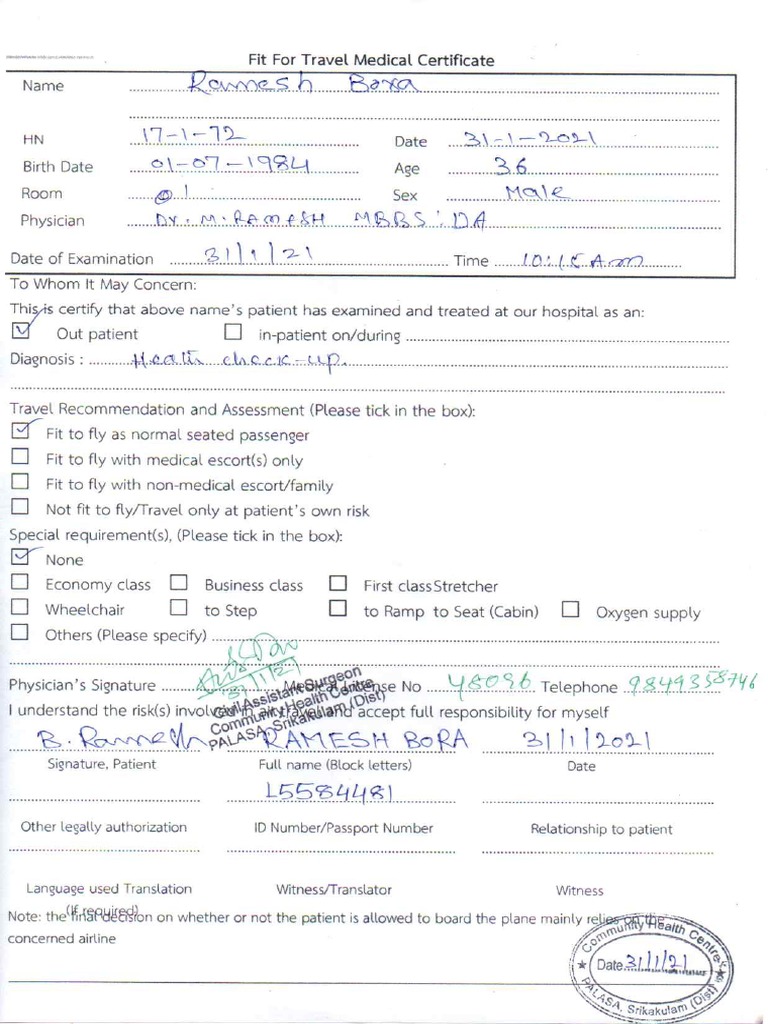 Fit For Travel Medical Certificate
Name Ramesh Bora
HN 17-1-72 Date 31-1-2021
Birth Date 01-07-1984 Age 36
Room 1 Sex Male
Physician Dr. M. RAMESH MBBS. DA
Date of Examination 31/1/21 Time 10:15 Am
To Whom It May Concern:
This is certify that above name's patient has examined and treated at our hospital as an:
Out patient in-patient on/during
Diagnosis : Health check-up.
Travel Recommendation and Assessment (Please tick in the box):
Fit to fly as normal seated passenger
Fit to fly with medical escort(s) only
Fit to fly with non-medical escort/family
Not fit to fly/Travel only at patient's own risk
Special requirement(s), (Please tick in the box):
None
Economy class Business class First class Stretcher
Wheelchair to Step to Ramp to Seat (Cabin) Oxygen supply
Others (Please specify)
31/1/21
Physician's Signature License No 48096 Telephone 9849358746
Civil Assistant Surgeon
Community Health Centre
PALASA, Srikakulam (Dist)
I understand the risk(s) involved in air travel and accept full responsibility for myself
B. Ramesh RAMESH BORA 31/1/2021
Signature, Patient Full name (Block letters) Date
L5584481
Other legally authorization ID Number/Passport Number Relationship to patient
Language used Translation Witness/Translator Witness
(If required)
Note: the final decision on whether or not the patient is allowed to board the plane mainly relies on the
concerned airline
Community Health Centre
Date 31/1/21
PALASA, Srikakulam (Dist)